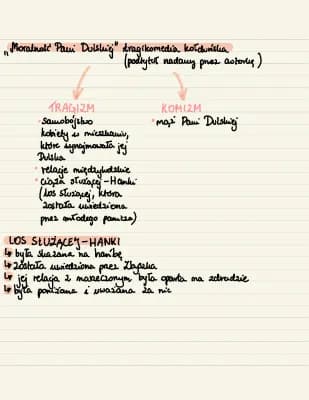 „Moralność Pani Dulskiej" tragikomedia kołtuńska
(podtytuł nadany przez autorkę)
TRAGIZM
KOMIZM
• samobójstwo
• mąż Pani Dulskiej
kobiety w mieszkaniu,
które wynajmowała jej
Dulska
• relacje międzyludzkie
• ciąża służącej - Hanki
(los służącej, która
została uwiedziona
przez młodego panicza)
LOS SŁUŻĄCEJ - HANKI
↳ była skazana na hańbę
↳ została uwiedziona przez Zbyszka
↳ jej relacja z narzeczonym była oparta na zdradzie
↳ była poniżana i uważana za nic